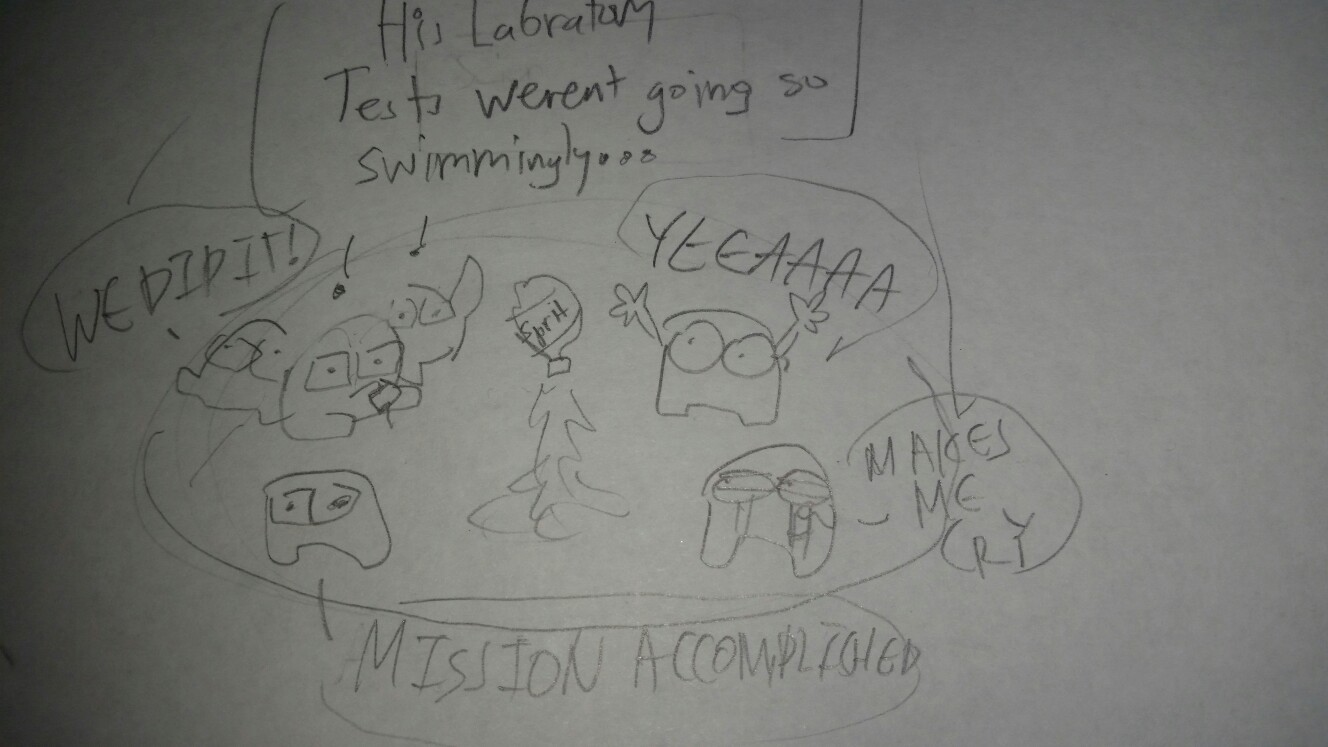 His Labratory
Tests werent going so
swimmingly...
WE DID IT!
!
!
YEEAAAA
Sprit
MAKES
ME
CRY
MISSION ACCOMPLISHED